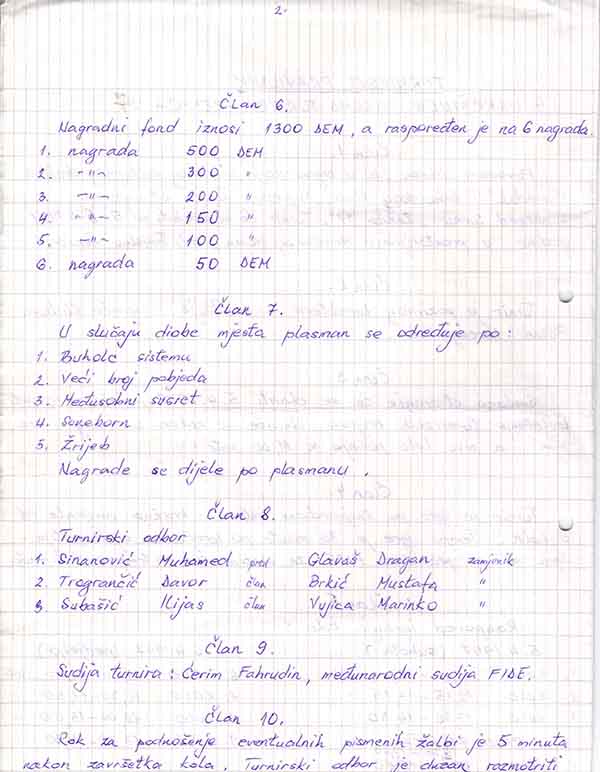 2.
Član 6.
Nagradni fond iznosi 1300 DEM, a raspoređen je na 6 nagrada.
1. nagrada 500 DEM
2. -"- 300 "
3. -"- 200 "
4. -"- 150 "
5. -"- 100 "
6. nagrada 50 DEM
Član 7.
U slučaju diobe mjesta plasman se određuje po:
1. Buholc sistemu
2. Veći broj pobjeda
3. Međusobni susret
4. Soneborn
5. Žrijeb
Nagrade se dijele po plasmanu.
Član 8.
Turnirski odbor
1. Sinanović Muhamed pred Glavaš Dragan zamjenik
2 Trogrančić Davor član Brkić Mustafa "
3 Subašić Ilijas član Vujica Marinko "
Član 9.
Sudija turnira: Ćerim Fahrudin, međunarodni sudija FIDE.
Član 10.
Rok za podnošenje eventualnih pismenih žalbi je 5 minuta
nakon završetka kola. Turnirski odbor je dužan razmotriti